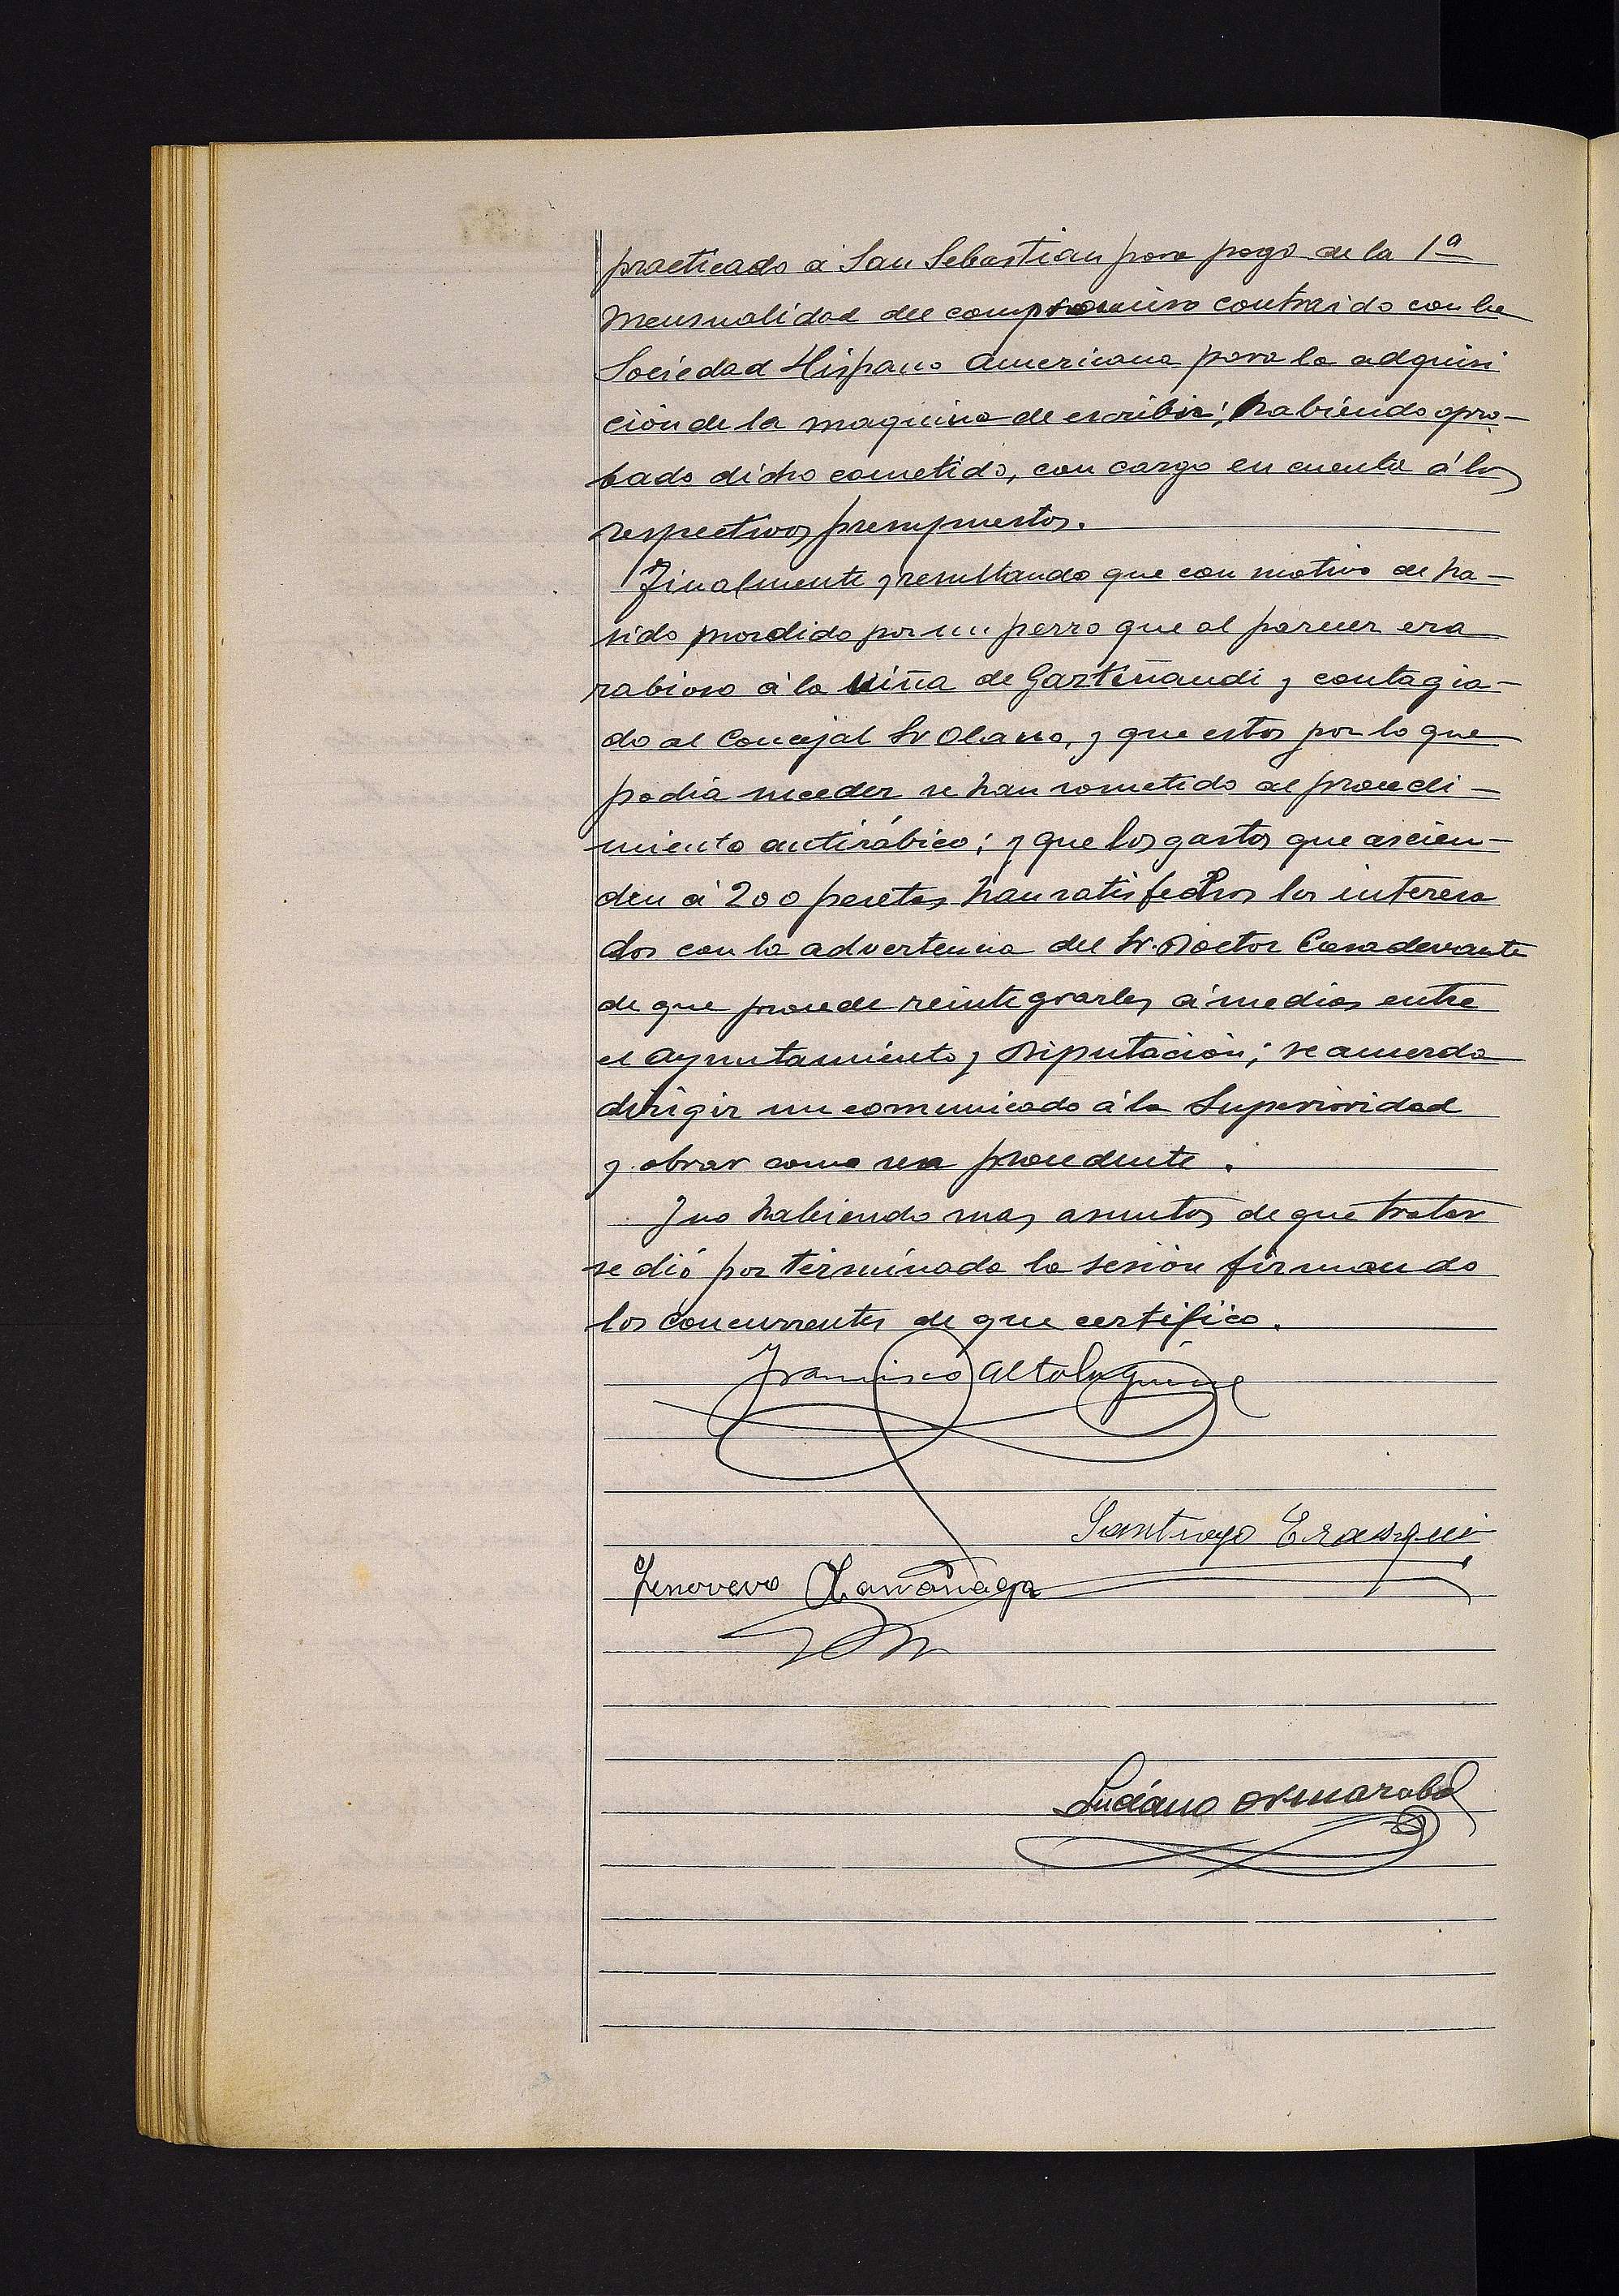 practicado á San Sebastian para pago de la 1ª
Mensualidad del compromiso contraido con la
Sociedad Hispano Americana para la adquisi
ción de la maquina de escribir; habiendo apro-
bado dicho cometido, con cargo en cuenta á los
respectivos presupuestos.
Finalmente y resultando que con motivo de ha-
sido mordido por un perro que al parecer era
rabioso á la niña de Gaztiñaudi y contagia-
do al Concejal Sr Olano, y que estos por lo que
podia suceder se han sometido al procedi-
miento antirábico; y que los gastos que ascien-
den á 200 pesetas han satisfechos los interesa
dos con la advertencia del Sr. Doctor Casadevante
de que procede reintegrarles á medias entre
el Ayuntamiento y Diputación; se acuerda
dirigir un comunicado á la Superioridad
y obrar como sea procedente.
Y no habiendo mas asuntos de que tratar
se dió por terminada la sesión firmando
los concurrentes de que certifico.
Francisco Altolaguirre
Santiago Erasquin
Genovevo Larrañaga
Luciano Ormazabal